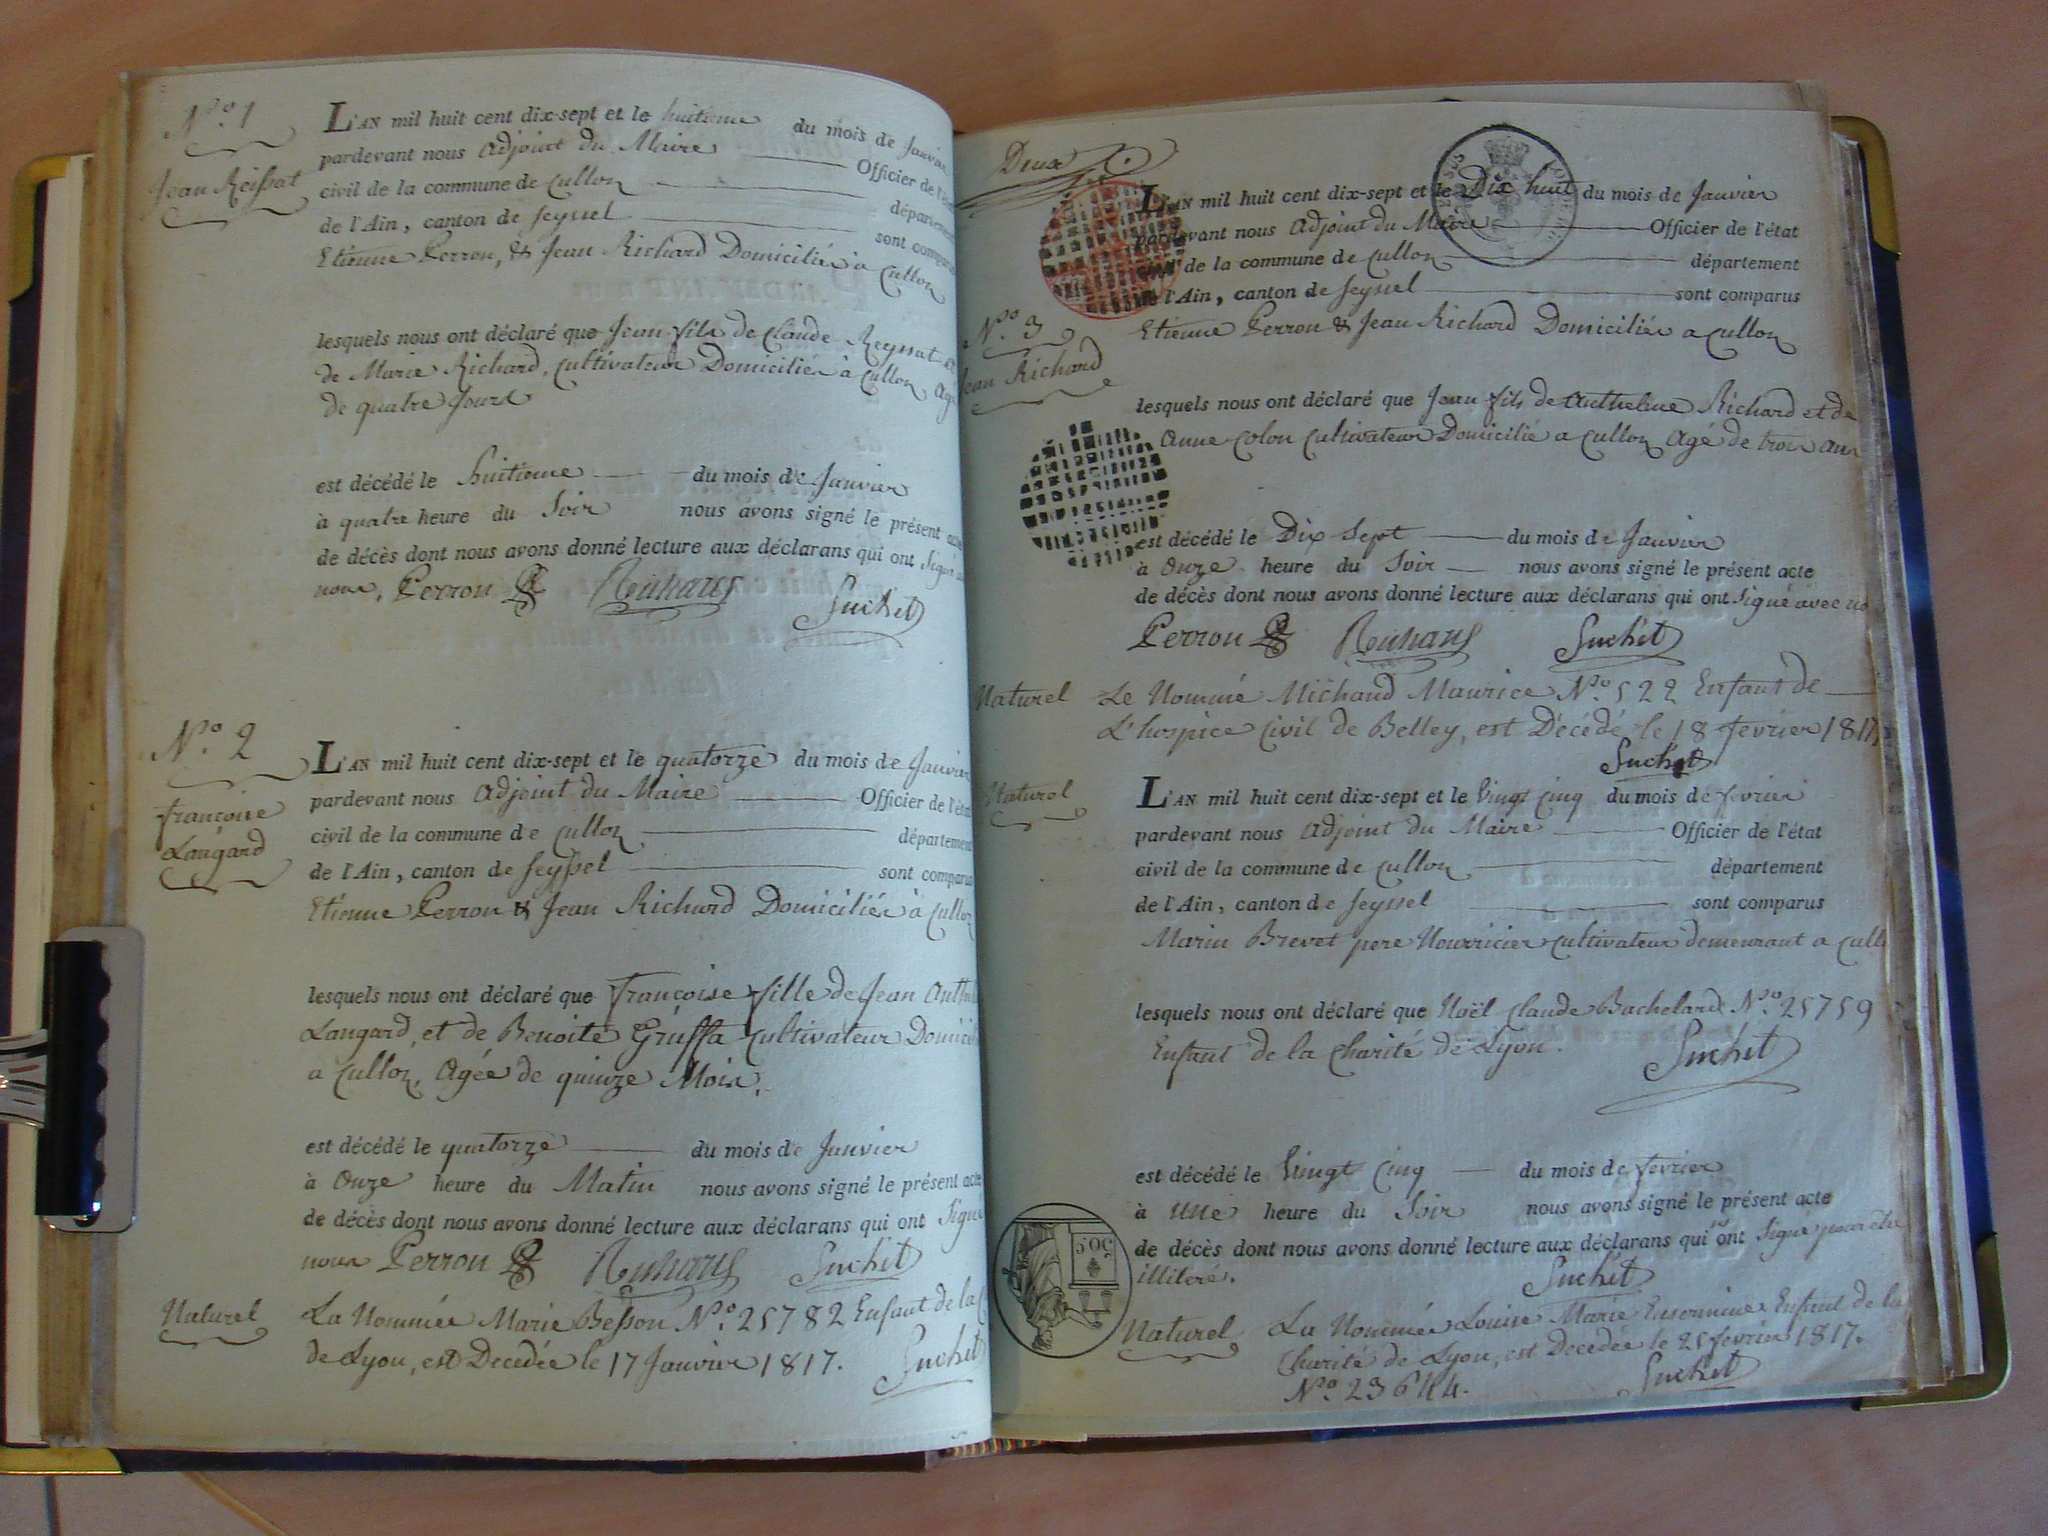 N.o 1
Jean Reissat
L'AN mil huit cent dix-sept et le huitieme du mois de Janvier
pardevant nous Adjoint du Maire Officier de l'
civil de la commune de Culloz département
de l'Ain, canton de Seyssel sont comparus
Etienne Perron, & Jean Richard Domiciliés à Culloz
lesquels nous ont déclaré que Jean fils de Claude Reyssat et
de Marie Richard, Cultivateur Domiciliés à Culloz Agé
de quatre Jours
est décédé le huitieme du mois de Janvier
à quatre heure du Soir nous avons signé le présent acte
de décès dont nous avons donné lecture aux déclarans qui ont Signé
nous, Perron Richard Suchet
N.o 2
françoise
Langard
L'AN mil huit cent dix-sept et le quatorze du mois de Janvier
pardevant nous Adjoint du Maire Officier de l'état
civil de la commune de Culloz département
de l'Ain, canton de Seyssel sont comparus
Etienne Perron & Jean Richard Domiciliés à Culloz
lesquels nous ont déclaré que françoise fille de Jean
Langard, et de Benoite Gruffa Cultivateur
a Culloz, Agée de quinze Mois,
est décédé le quatorze du mois de Janvier
à Onze heure du Matin nous avons signé le présent acte
de décès dont nous avons donné lecture aux déclarans qui ont Signé
nous Perron Richard Suchet
Naturel La Nommée Marie Besson N.o 25782 Enfant de la
de Lyon, est Decedée le 17 Janvier 1817. Suchet
Deux
L'AN mil huit cent dix-sept et le Dix huit du mois de Janvier
pardevant nous Adjoint du Maire Officier de l'état
civil de la commune de Culloz département
de l'Ain, canton de Seyssel sont comparus
Etienne Perron & Jean Richard Domiciliés a Culloz
N.o 3
Jean Richard
lesquels nous ont déclaré que Jean fils de Antheline Richard et de
Anne Colon Cultivateur Domicilié a Culloz Agé de trois Ans
est décédé le Dix Sept du mois de Janvier
à Onze heure du Soir nous avons signé le présent acte
de décès dont nous avons donné lecture aux déclarans qui ont Signé avec
Perron Richard Suchet
Naturel Le Nommé Michaud Maurice N.o 522 Enfant de
L'hospice Civil de Belley, est Décédé le 18 fevrier 1817
Suchet
Naturel
L'AN mil huit cent dix-sept et le Vingt Cinq du mois de fevrier
pardevant nous Adjoint du Maire Officier de l'état
civil de la commune de Culloz département
de l'Ain, canton de Seyssel sont comparus
Marin Brevet pere Nourricier Cultivateur demeurant a
lesquels nous ont déclaré que Noël Claude Bachelard N.o 25759
Enfant de la Charité de Lyon. Suchet
est décédé le Vingt Cinq du mois de fevrier
à Une heure du Soir nous avons signé le présent acte
de décès dont nous avons donné lecture aux déclarans qui ont Signé
illiteré. Suchet
50C
Naturel La Nommée Louise Marie Enfant de la
Charité de Lyon, est Decedée le 25 fevrier 1817.
N.o 23644. Suchet